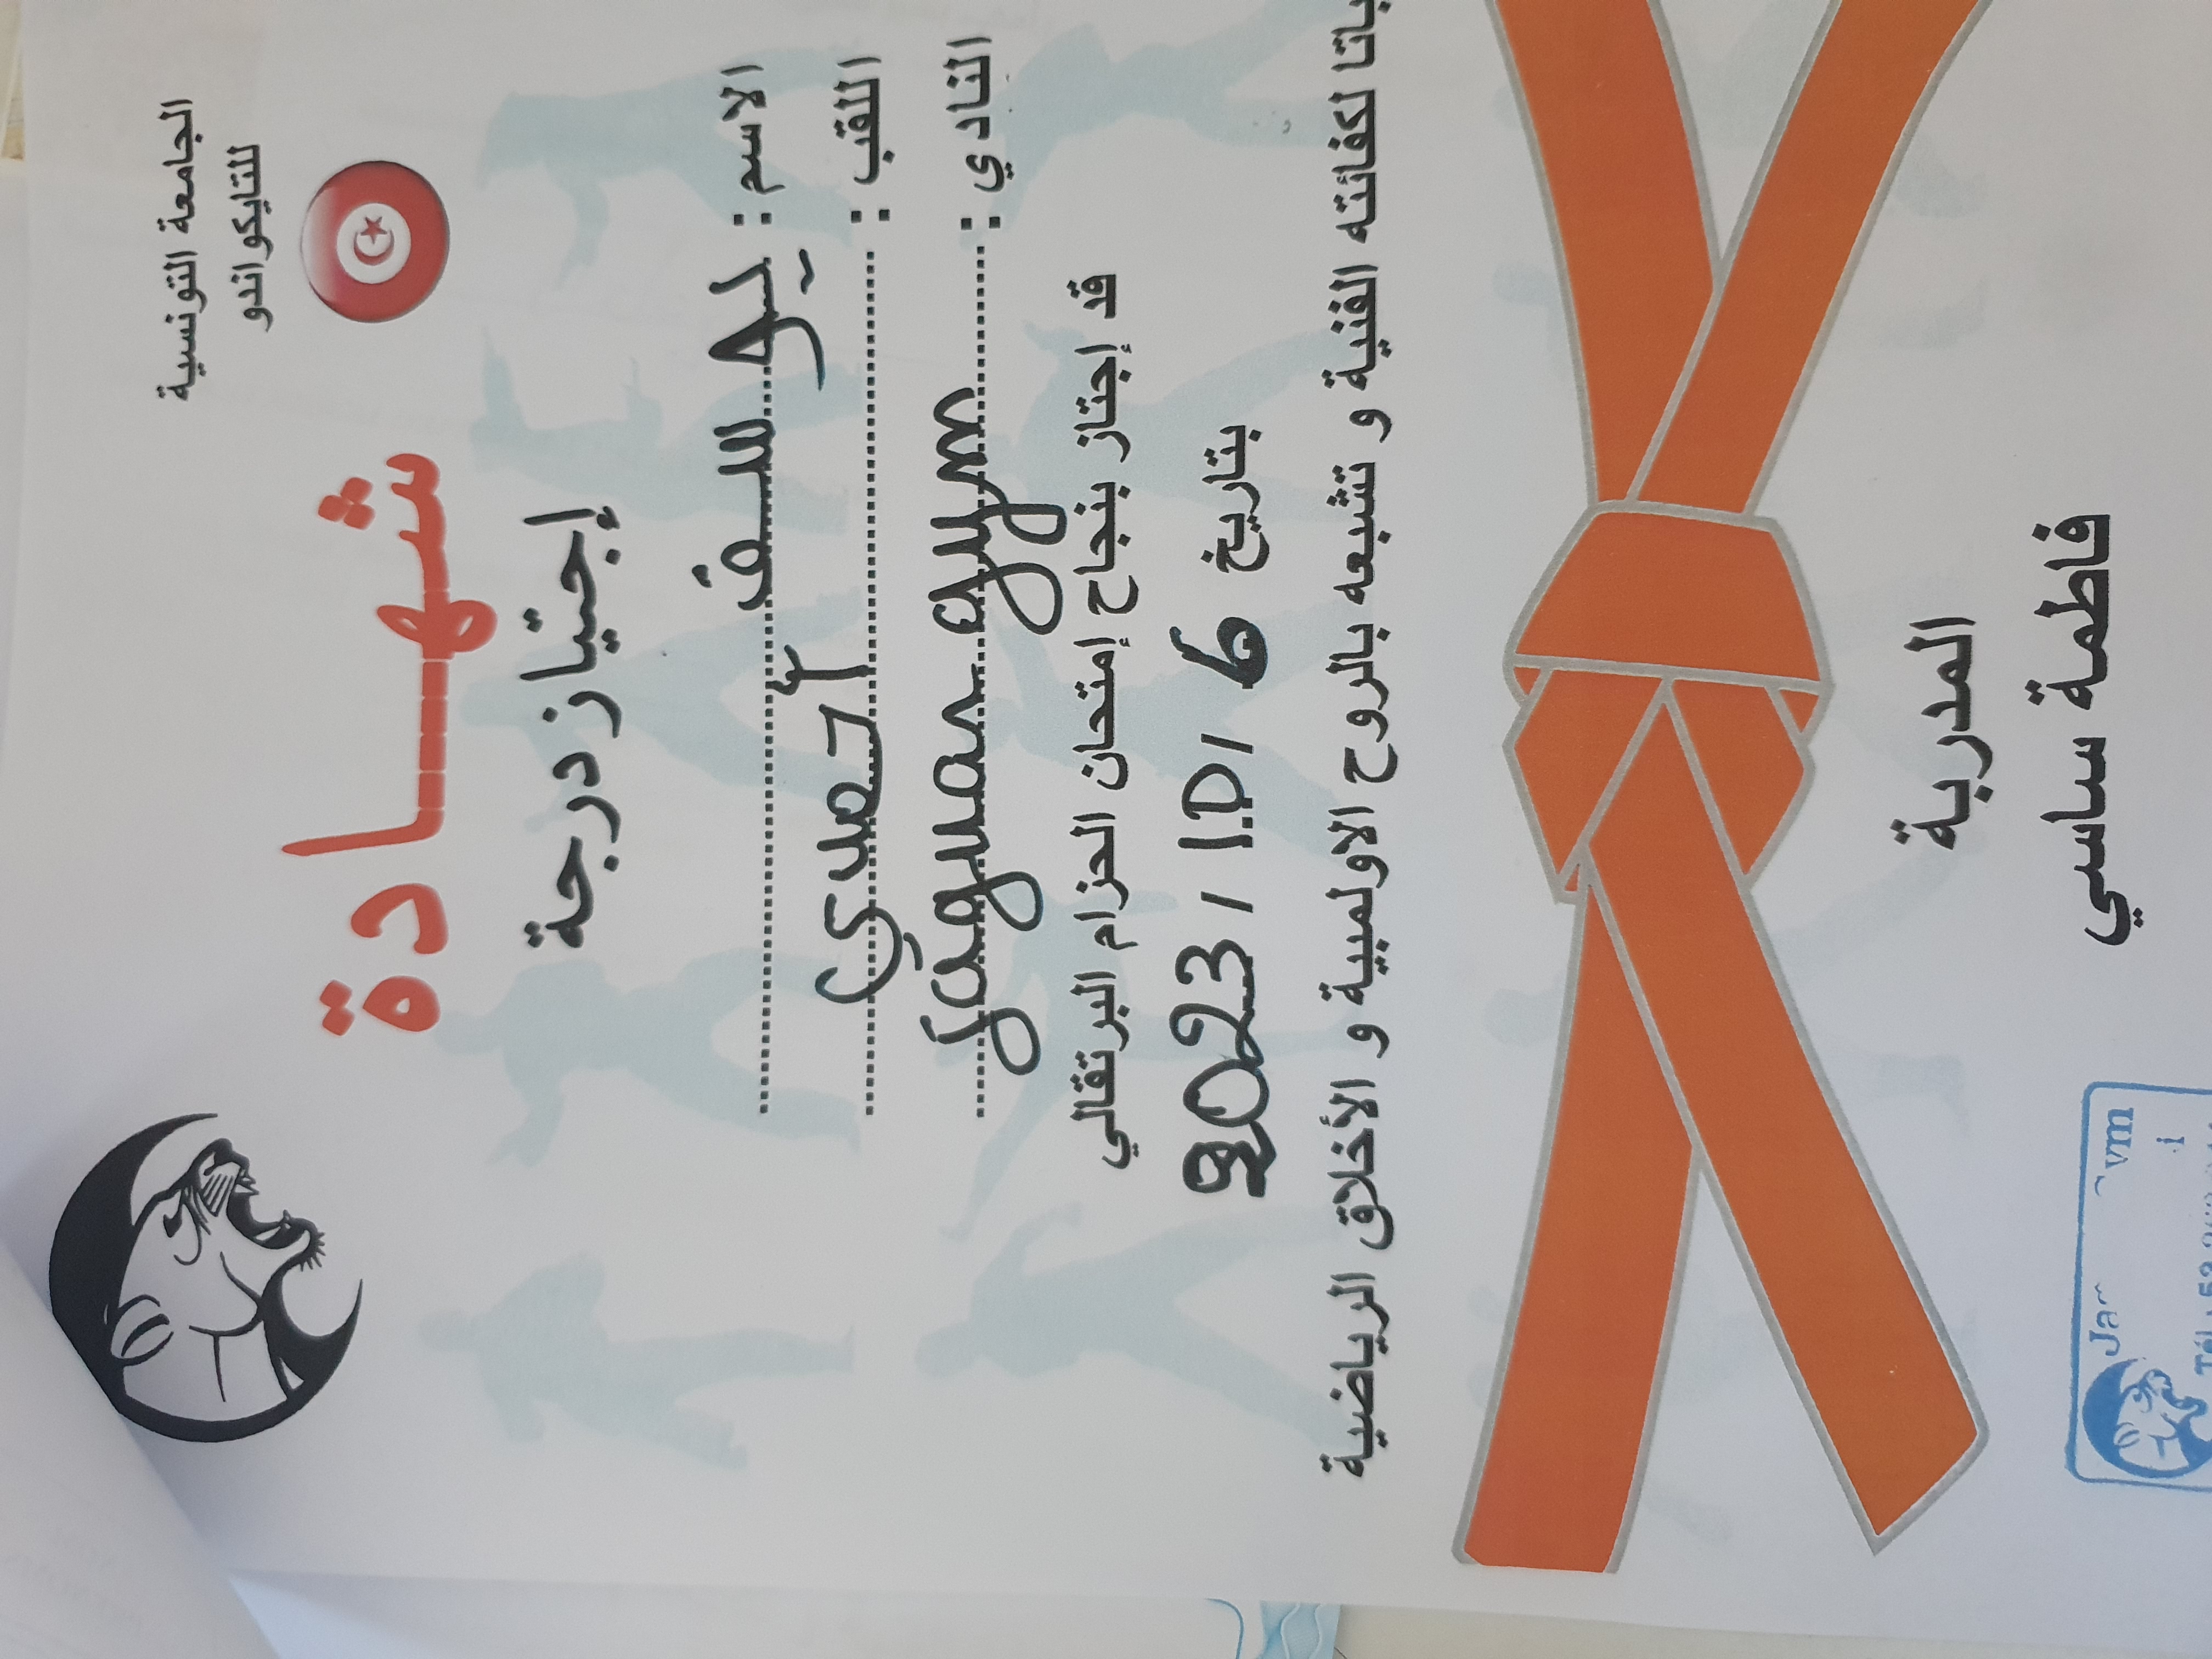 الجامعة التونسية
للتايكواندو
شهــــادة
إجتياز درجة
الاسم : يوسف
اللقب : أحمدي
النادي : Jaguar gym
قد إجتاز بنجاح إمتحان الحزام البرتقالي
بتاريخ 6 / 10 / 2023
باتا لكفائته الفنية و تشبعه بالروح الاولمبية و الأخلاق الرياضية
المدربة
فاطمة ساسي